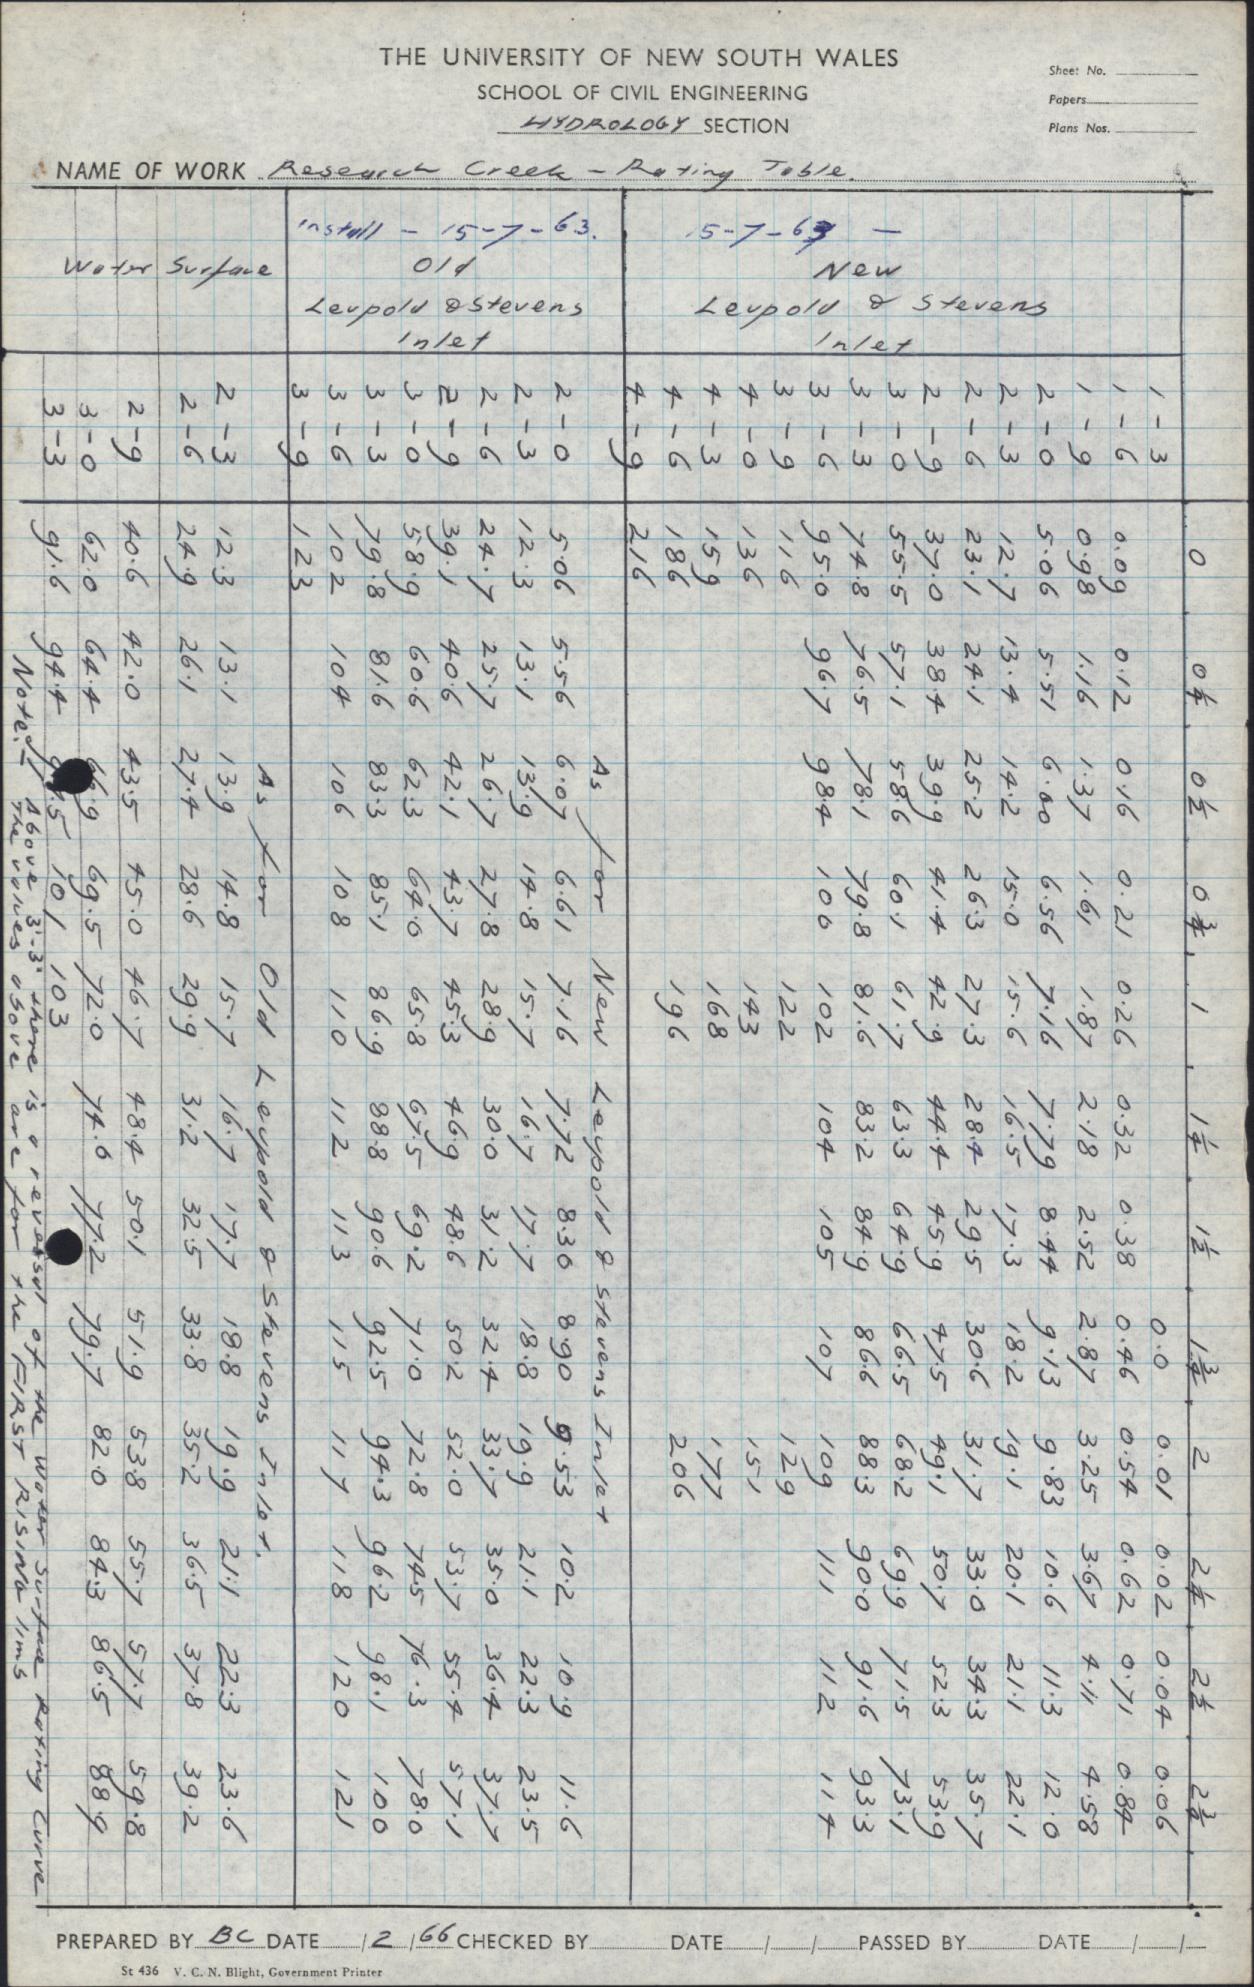 THE UNIVERSITY OF NEW SOUTH WALES
SCHOOL OF CIVIL ENGINEERING
HYDROLOGY SECTION
Sheet No.
Papers
Plans Nos.
NAME OF WORK Research Creek - Rating Table.
0 0¼ 0½ 0¾ 1 1¼ 1½ 1¾ 2 2¼ 2½ 2¾
15-7-63 —
New
Leupold & Stevens
Inlet
1-3 0.0 0.01 0.02 0.04 0.06
1-6 0.09 0.12 0.16 0.21 0.26 0.32 0.38 0.46 0.54 0.62 0.71 0.84
1-9 0.98 1.16 1.37 1.61 1.87 2.18 2.52 2.87 3.25 3.67 4.11 4.58
2-0 5.06 5.51 6.00 6.56 7.16 7.79 8.44 9.13 9.83 10.6 11.3 12.0
2-3 12.7 13.4 14.2 15.0 15.6 16.5 17.3 18.2 19.1 20.1 21.1 22.1
2-6 23.1 24.1 25.2 26.3 27.3 28.4 29.5 30.6 31.7 33.0 34.3 35.7
2-9 37.0 38.4 39.9 41.4 42.9 44.4 45.9 47.5 49.1 50.7 52.3 53.9
3-0 55.5 57.1 58.6 60.1 61.7 63.3 64.9 66.5 68.2 69.9 71.5 73.1
3-3 74.8 76.5 78.1 79.8 81.6 83.2 84.9 86.6 88.3 90.0 91.6 93.3
3-6 95.0 96.7 98.4 100 102 104 105 107 109 111 112 114
3-9 116 122 129
4-0 136 143 151
4-3 159 168 177
4-6 186 196 206
4-9 216
Install - 15-7-63.
Old
Leupold & Stevens
Inlet
As for New Leupold & Stevens Inlet
2-0 5.06 5.56 6.07 6.61 7.16 7.72 8.30 8.90 9.53 10.2 10.9 11.6
2-3 12.3 13.1 13.9 14.8 15.7 16.7 17.7 18.8 19.9 21.1 22.3 23.5
2-6 24.7 25.7 26.7 27.8 28.9 30.0 31.2 32.4 33.7 35.0 36.4 37.7
2-9 39.1 40.6 42.1 43.7 45.3 46.9 48.6 50.2 52.0 53.7 55.4 57.1
3-0 58.9 60.6 62.3 64.0 65.8 67.5 69.2 71.0 72.8 74.5 76.3 78.0
3-3 79.8 81.6 83.3 85.1 86.9 88.8 90.6 92.5 94.3 96.2 98.1 100
3-6 102 104 106 108 110 112 113 115 117 118 120 121
3-9 123
Water Surface
As for Old Leupold & Stevens Inlet.
2-3 12.3 13.1 13.9 14.8 15.7 16.7 17.7 18.8 19.9 21.1 22.3 23.6
2-6 24.9 26.1 27.4 28.6 29.9 31.2 32.5 33.8 35.2 36.5 37.8 39.2
2-9 40.6 42.0 43.5 45.0 46.7 48.4 50.1 51.9 53.8 55.7 57.7 59.8
3-0 62.0 64.4 69.5 72.0 74.6 77.2 79.7 82.0 84.3 86.5 88.9
3-3 91.6 94.4 101 103
Note:- Above 3'-3" there is a reversal of the Water Surface Rating Curve
The values above are for the FIRST RISING limb
PREPARED BY BC DATE /2/66 CHECKED BY DATE / / PASSED BY DATE / /
St 436 V. C. N. Blight, Government Printer